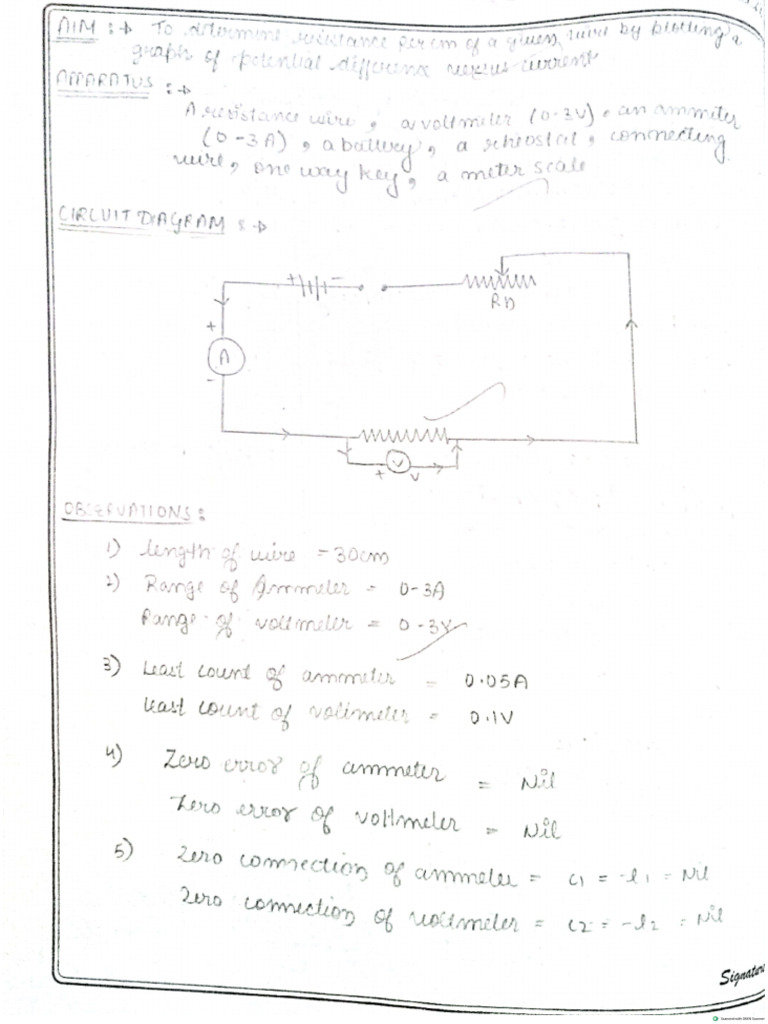 AIM :→ To determine resistance per cm of a given wire by plotting a
graph of potential difference versus current
APPARATUS :→
A resistance wire, a voltmeter (0-3V), an ammeter
(0-3A), a battery, a rheostat, connecting
wire, one way key, a meter scale
CIRCUIT DIAGRAM :→
+ -
Rh
+
A
-
+ V V
OBSERVATIONS :
1) Length of wire = 30cm
2) Range of Ammeter = 0-3A
Range of voltmeter = 0-3V
3) Least count of ammeter = 0.05A
Least count of voltmeter = 0.1V
4) Zero error of ammeter = Nil
Zero error of voltmeter = Nil
5) Zero connection of ammeter = c1 = -l1 = Nil
Zero connection of voltmeter = c2 = -l2 = Nil
Signature